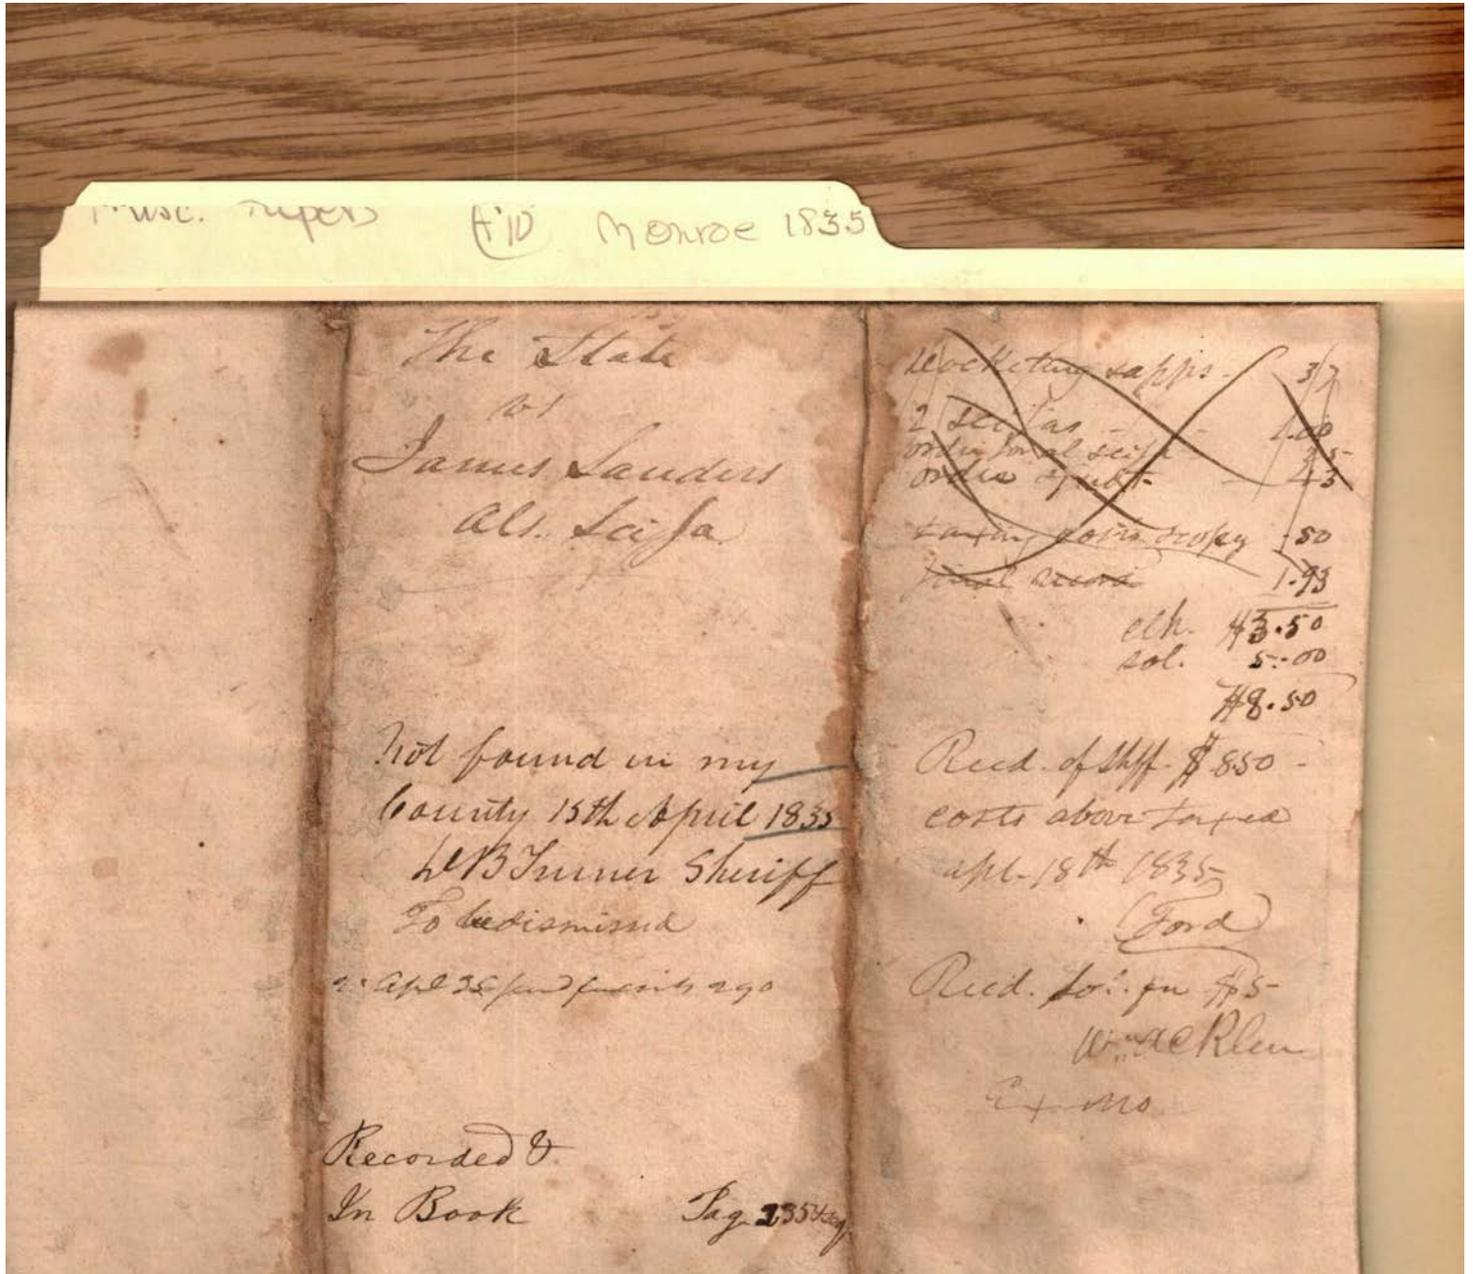 Misc. Papers A-D Monroe 1835
The State
vs
James Sanders
Als. Sci fa
Not found in my
County 15th April 1835
D B Turner Sheriff
To be dismissed
apl 35
ago
Recorded &
In Book Pag 235
Docketing sapps. 37
2 sci fas 1.00
order for al sci fa 25
order 
taxing costs & copy 50
final record 1.93
clk. $3.50
sol. 5.00
$8.50
Recd. of Shff. $850
costs above taxed
apl. 18th 1835
Ford
Recd. sol. $5
Wm Acklen